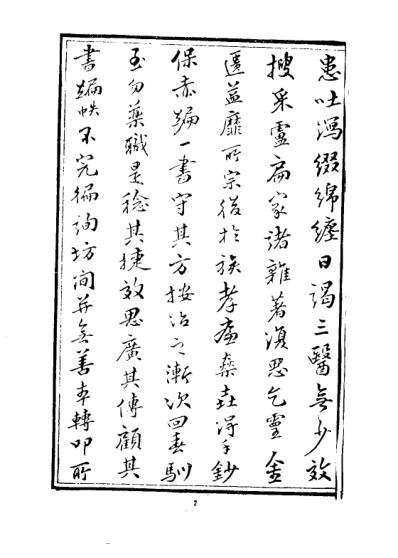 患吐瀉綴綿纏日謁三醫無少效
搜采盧扁家諸雜著思乞靈金
匱益靡所宗後於族孝廉燊垚得手鈔
保赤編一書守其方按治之漸次回春馴
至勿藥職是稔其捷效思廣其傳顧其
書編帙不完徧詢坊間并無善本轉叩所
2